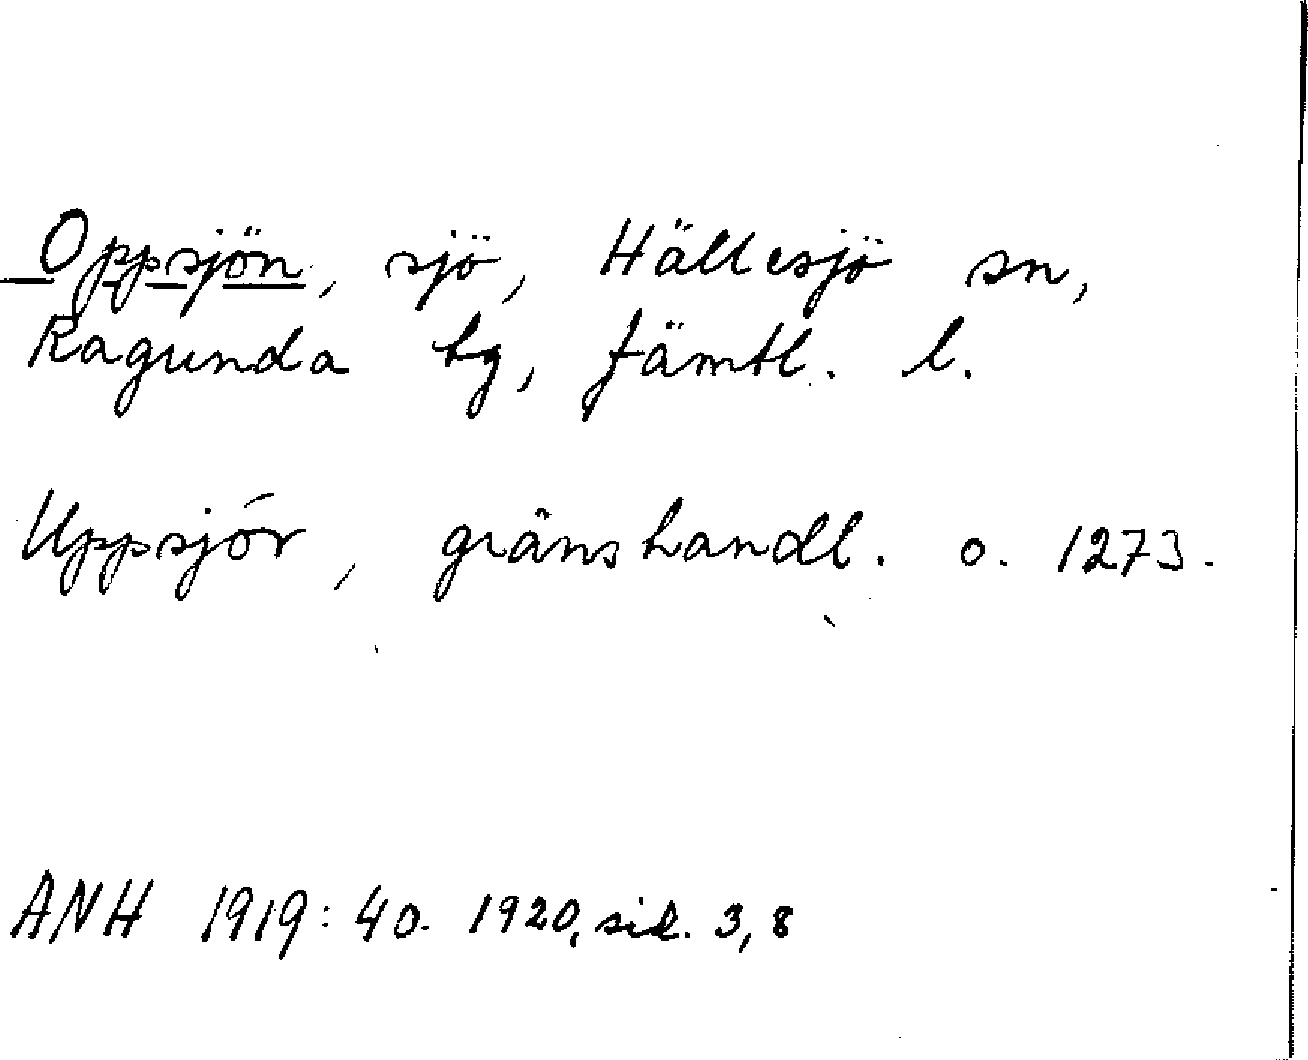 Oppsjön, sjö, Hällesjö sn,
Ragunda tg, Jämtl. l.
Uppsjór, gränshandl. o. 1273.
ANH 1919:40. 1920, sid. 3,8